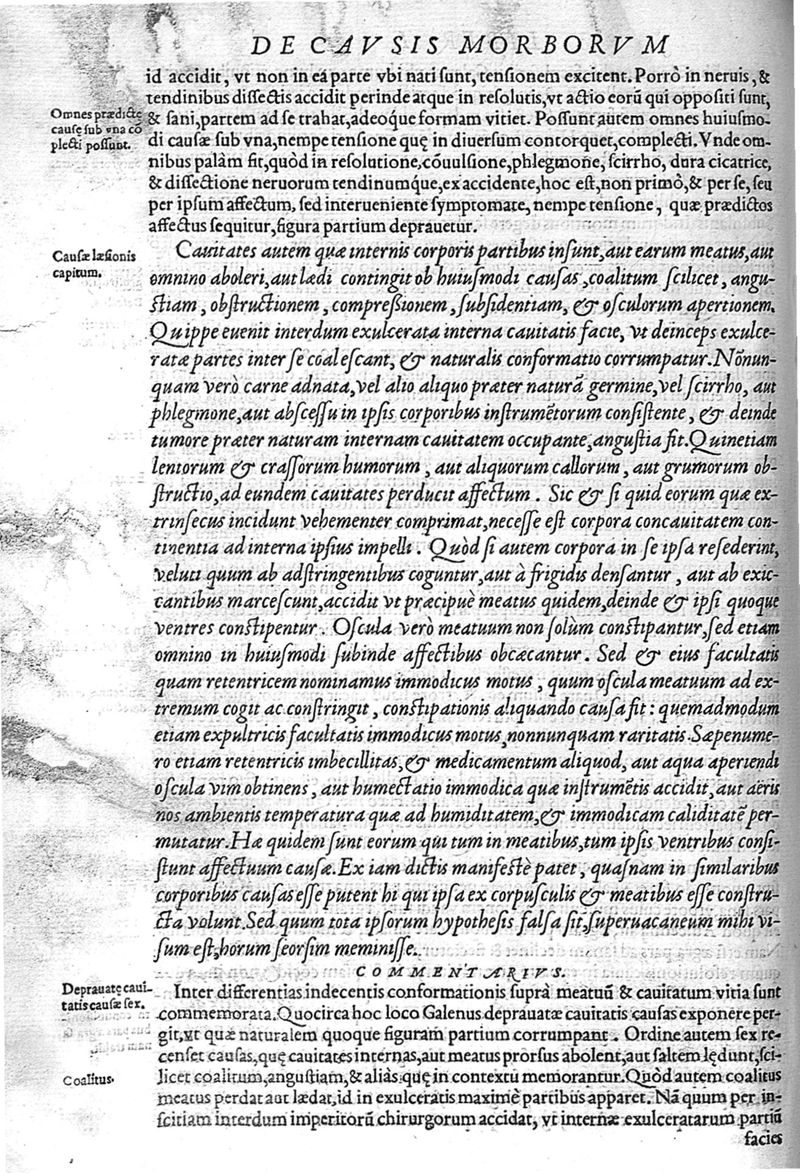 DE CAVSIS MORBORVM
id accidit, vt non in eá parte vbi nati sunt, tensionem excitent. Porrò in neruis, &
tendinibus dissectis accidit perinde atque in resolutis, vt actio eorũ qui oppositi sunt,
Omnes prædictę
causę sub vna cõ
plecti possunt.
& sani, partem ad se trahat, adeoque formam vitiet. Possunt autem omnes huiusmo-
di causæ sub vna, nempe tensione quę in diuersum contorquet, complecti. Vnde om-
nibus palàm fit, quòd in resolutione, cõuulsione, phlegmone, scirrho, dura cicatrice,
& dissectione neruorum tendinumque, ex accidente, hoc est, non primò, & per se, seu
per ipsum affectum, sed interueniente symptomate, nempe tensione, quæ prædictos
affectus sequitur, figura partium deprauetur.
Causæ læsionis
capitum.
Cauitates autem quæ internis corporis partibus insunt, aut earum meatus, aut
omnino aboleri, aut lædi contingit ob huiusmodi causas, coalitum scilicet, angu-
stiam, obstructionem, compreßionem, subsidentiam, & osculorum apertionem.
Quippe euenit interdum exulcerata interna cauitatis facie, vt deinceps exulce-
ratæ partes inter se coalescant, & naturalis conformatio corrumpatur. Nõnun-
quam verò carne adnata, vel alio aliquo præter naturã germine, vel scirrho, aut
phlegmone, aut abscessu in ipsis corporibus instrumẽtorum consistente, & deinde
tumore præter naturam internam cauitatem occupante, angustia fit. Quinetiam
lentorum & crassorum humorum, aut aliquorum callorum, aut grumorum ob-
structio, ad eundem cauitates perducit affectum. Sic & si quid eorum quæ ex-
trinsecus incidunt vehementer comprimat, necesse est corpora concauitatem con-
tinentia ad interna ipsius impelli. Quòd si autem corpora in se ipsa resederint,
veluti quum ab adstringentibus coguntur, aut à frigidis densantur, aut ab exic-
cantibus marcescunt, accidit vt præcipuè meatus quidem, deinde & ipsi quoque
ventres constipentur. Oscula verò meatuum non solùm constipantur, sed etiam
omnino in huiusmodi subinde affectibus obcæcantur. Sed & eius facultatis
quam retentricem nominamus immodicus motus, quum oscula meatuum ad ex-
tremum cogit ac constringit, constipationis aliquando causa fit: quemadmodum
etiam expultricis facultatis immodicus motus, nonnunquam raritatis. Sæpenume-
ro etiam retentricis imbecillitas, & medicamentum aliquod, aut aqua aperiendi
oscula vim obtinens, aut humectatio immodica quæ instrumẽtis accidit, aut aëris
nos ambientis temperatura quæ ad humiditatem, & immodicam caliditatẽ per-
mutatur. Hæ quidem sunt eorum qui tum in meatibus, tum ipsis ventribus consi-
stunt affectuum causæ. Ex iam dictis manifestè patet, quasnam in similaribus
corporibus causas esse putent hi qui ipsa ex corpusculis & meatibus esse constru-
cta volunt. Sed quum tota ipsorum hypothesis falsa sit, superuacaneum mihi vi-
sum est, horum seorsim meminisse.
COMMENTARIVS.
Deprauatę caui-
tatis causæ sex.
Inter differentias indecentis conformationis suprà meatuũ & cauitatum vitia sunt
commemorata. Quocirca hoc loco Galenus deprauatæ cauitatis causas exponere per-
git, vt quæ naturalem quoque figuram partium corrumpant. Ordine autem sex re-
censet causas, quę cauitates internas, aut meatus prorsus abolent, aut saltem lędunt, sci-
Coalitus.
licet coalitum, angustiam, & aliàs quę in contextu memorantur. Quòd autem coalitus
meatus perdat aut lædat, id in exulceratis maximè partibus apparet. Nã quum per in-
scitiam interdum imperitorũ chirurgorum accidat, vt internæ exulceratarum partiũ
facies